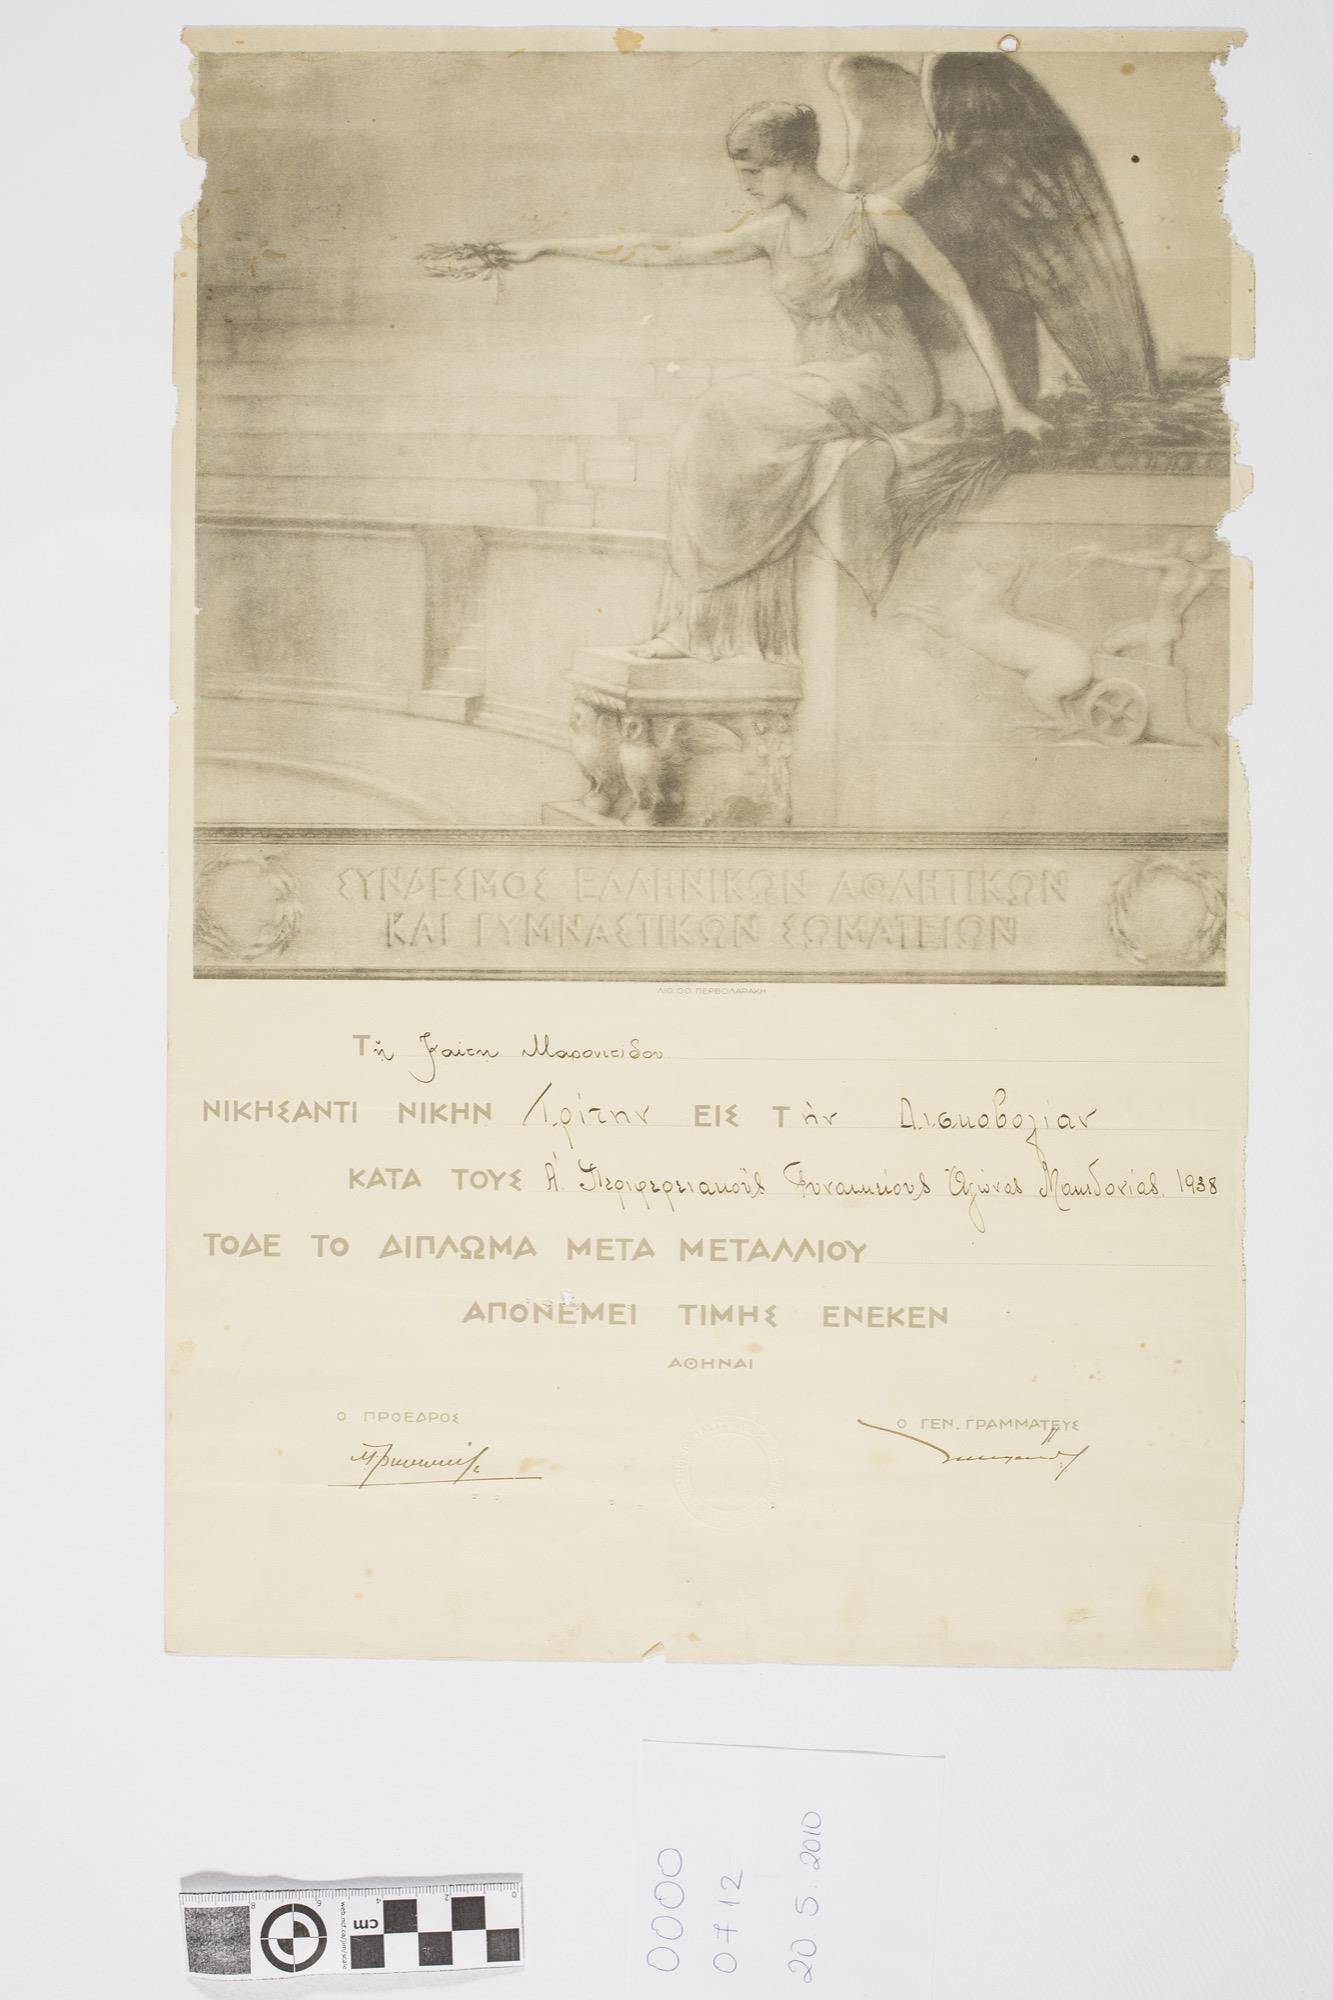 ΣΥΝΔΕΣΜΟΣ ΕΛΛΗΝΙΚΩΝ ΑΘΛΗΤΙΚΩΝ
ΚΑΙ ΓΥΜΝΑΣΤΙΚΩΝ ΣΩΜΑΤΕΙΩΝ
ΛΙΘ. ΘΘ. ΠΕΡΒΟΛΑΡΑΚΗ
Τῇ Καίτη
ΝΙΚΗΣΑΝΤΙ ΝΙΚΗΝ Τρίτην ΕΙΣ Τὴν Δισκοβολίαν
ΚΑΤΑ ΤΟΥΣ Α΄. Περιφερειακοὺς Γυναικείους Ἀγώνας Μακεδονίας. 1938
ΤΟΔΕ ΤΟ ΔΙΠΛΩΜΑ ΜΕΤΑ ΜΕΤΑΛΛΙΟΥ
ΑΠΟΝΕΜΕΙ ΤΙΜΗΣ ΕΝΕΚΕΝ
ΑΘΗΝΑΙ
Ο ΠΡΟΕΔΡΟΣ
Ο ΓΕΝ. ΓΡΑΜΜΑΤΕΥΣ
0000
0712
20. 5. 2010
cm
0 2 4 6 8